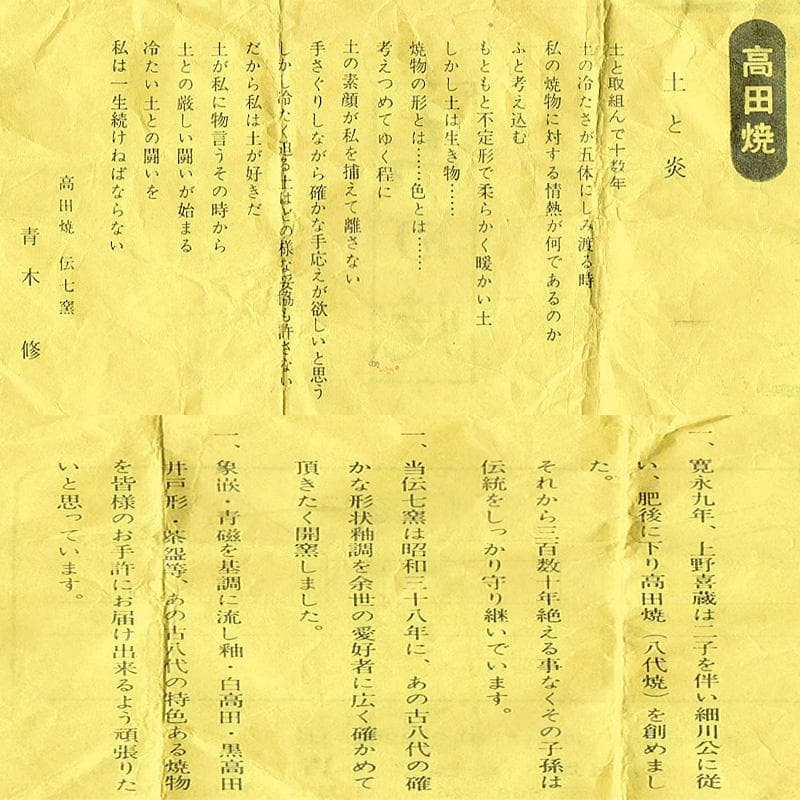 高田焼
土と炎
土と取組んで十数年
土の冷たさが五体にしみ渡る時
私の焼物に対する情熱が何であるのか
ふと考え込む
もともと不定形で柔らかく暖かい土
しかし土は生き物……
焼物の形とは……色とは……
考えつめてゆく程に
土の素顔が私を捕えて離さない
手さぐりしながら確かな手応えが欲しいと思う
しかし冷たく迫る土はどの様な妥協も許さない
だから私は土が好きだ
土が私に物言うその時から
土との厳しい闘いが始まる
冷たい土との闘いを
私は一生続けねばならない
高田焼 伝七窯
青木 修
一、寛永九年、上野喜蔵は二子を伴い細川公に従
い、肥後に下り高田焼（八代焼）を創めまし
た。
それから三百数十年絶える事なくその子孫は
伝統をしっかり守り継いでいます。
一、当伝七窯は昭和三十八年に、あの古八代の確
かな形状釉調を余世の愛好者に広く確かめて
頂きたく開窯しました。
一、象嵌・青磁を基調に流し釉・白高田・黒高田
井戸形・茶盌等、あの古八代の特色ある焼物
を皆様のお手許にお届け出来るよう頑張りた
いと思っています。